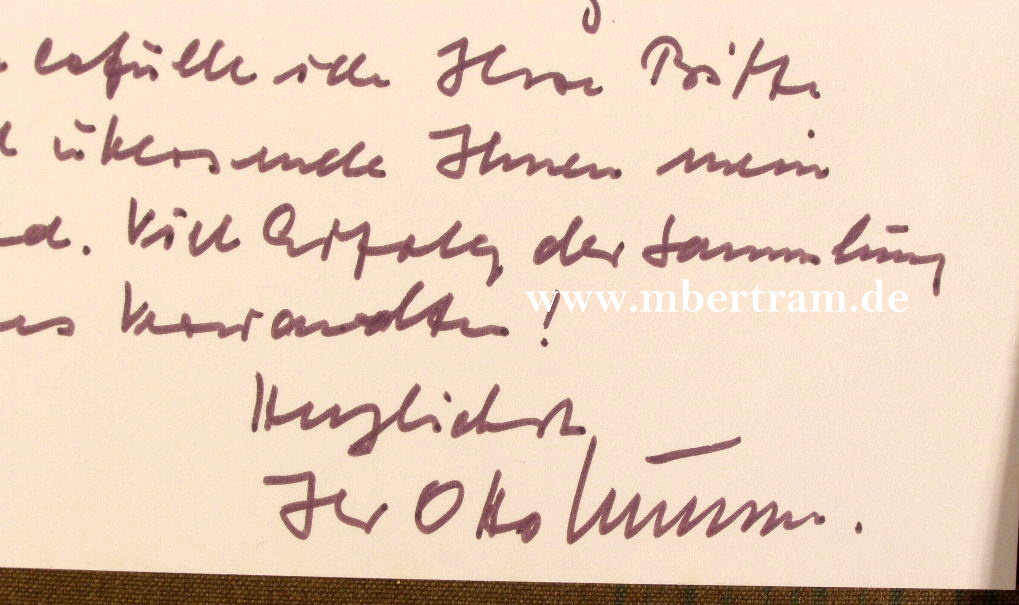 erfülle ich Ihre Bitte
übersende Ihnen mein
Viel Erfolg der Sammlung
www.mbertram.de
Verwandten!
Herzlichst
Ihr Otto